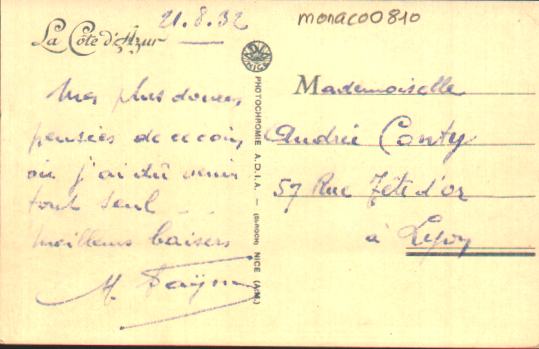 21.8.32
monaco0810
La Côte d'Azur
Mes plus douces
pensées de ce coin
où j'ai dû venir
tout seul
meilleurs baisers
PHOTOCHROMIE A.D.I.A. — NICE (A.M.)
NICE
Mademoiselle
Andrée Conty
57 Rue Tête d'or
à Lyon